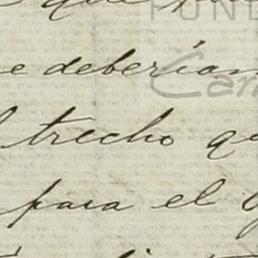 que
FUND
e deberían
Cam
trecho qu
para el